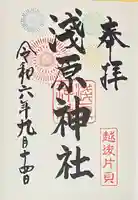 奉拝
越後片貝
浅原神社
令和六年九月十四日